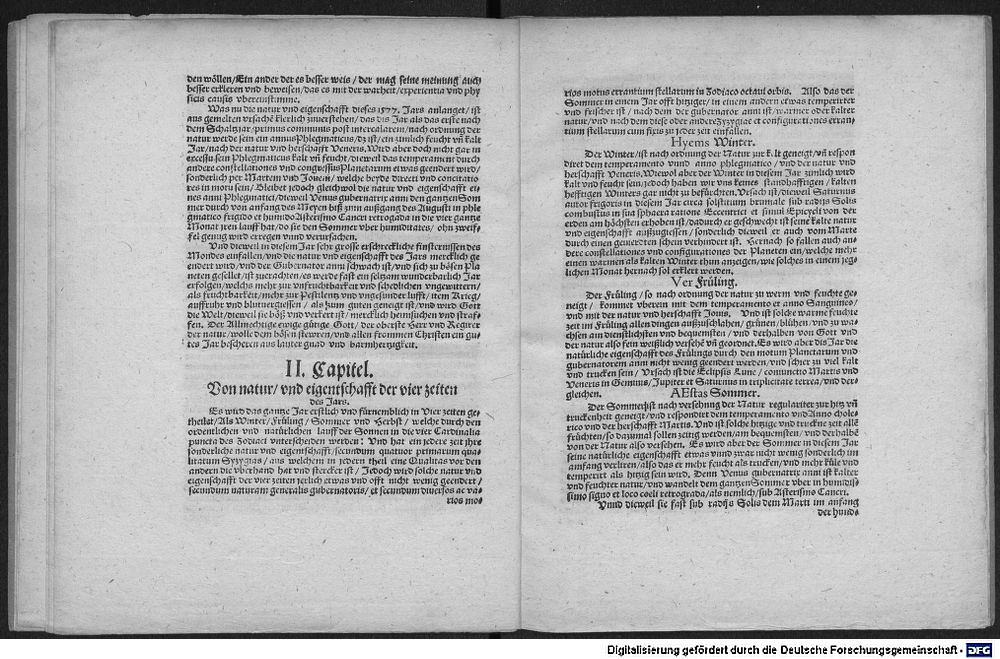 den wöllen/Ein ander der es besser weis / der mag seine meinung auch
besser erkleren vnd beweisen/das es mit der warheit/experientia vnd phy
sicis causis vbereinstimme.
Was nu die natur vnd eigenschafft dieses 1577. Jars anlanget/ ist
aus gemelten vrsachē klerlich zuuerstehen/ das dis Jar als das erste nach
dem Schaltjar/primus communis post intercalarem/nach ordnung der
natur werde sein ein annus Phlegmaticus/dz ist/ ein zimlich feucht vñ kalt
Jar/nach der natur vnd herschafft Veneris. Wird aber doch nicht gar in
excessu sein Phlegmaticus kalt vñ feucht/dieweil das temperament durch
andere constellationes vnd congressus Planetarum etwas geendert wird/
sonderlich per Martem vnd Jouem/ welche beyde directi vnd concitatio
res in motu sein/ Bleibet jedoch gleichwol die natur vnd eigenschafft ei-
nes anni Phlegmatici/dieweil Venus gubernatrix anni den gantzen Som
mer durch von anfang des Meyen biß zum außgang des Augusti in phle
gmatico frigido et humido Asterismo Cancri retrograda in die vier gantze
Monat jren lauff hat/do sie den Sommer vber humiditates / ohn zweif-
fel genug wird erregen vnnd verursachen.
Vnd dieweil in diesem Jar sehr grosse erschreckliche finsternissen des
Mondes einfallen/vnd die natur vnd eigenschafft des Jars mercklich ge
endert wird/vnd der Gubernator anni schwach ist/vnd sich zu bösen Pla
neten gesellet/ist zuerachten/es werde fast ein seltzam wunderbarlich Jar
erfolgen/welchs mehr zur vnfruchtbarkeit vnd schedlichen vngewittern/
als fruchtbarkeit/mehr zur Pestilentz vnd vngesunder lufft/ item Krieg/
auffruhr vnd blutuergiessen / als zum guten geneigt ist/vnd wird Gott
die Welt/dieweil sie böß vnd verkert ist/ mercklich heimsuchen vnd straf-
fen. Der Allmechtige ewige gütige Gott / der oberste Herr vnd Regirer
der natur/wolle dem bösen stewren/vnd allen frommen Christen ein gu-
tes Jar bescheren aus lauter gnad vnd barmhertzigkeit.
II. Capitel.
Von natur/ vnd eigentschafft der vier zeiten
des Jars.
Es wird das gantze Jar erstlich vnd fürnemblich in Vier zeiten ge-
theilat/Als Winter/ Früling / Sommer vnd Herbst / welche durch den
ordenlichen vnd natürlichen lauff der Sonnen in die vier Cardinalia
puncta des Zodiaci vnterscheiden werden: Vnd hat ein jedere zeit jhre
sonderliche natur vnd eigenschafft/secundum quatuor primarum qua-
litatum Syzygias / aus welchem in jedern theil eine Qualitas vor den
andern die vberhand hat vnd stercker ist / Jedoch wird solche natur vnd
eigenschafft der vier zeiten zerlich etwas vnd offt nicht wenig geendert /
secundum naturam generalis gubernatoris/ et secundum diuersos ac va-
rios mo-
rios motus errantium stellarum in Zodiaco octaui orbis. Also das der
Sommer in einem Jar offt hitziger/ in einem andern etwas temperirter
vnd frischer ist / nach dem der gubernator anni ist/warmer oder kalter
natur/vnd nach dem diese oder andere Zyzygiae et configurationes erran-
tium stellarum cum fixis zu jeder zeit einfallen.
Hyems Winter.
Der Winter/ist nach ordnung der Natur zur kalt geneigt/vñ respon
diret dem temperamento vnnd anno phlegmatico / vnd der natur vnd
herschafft Veneris. Wiewol aber der Winter in diesem Jar zimlich wird
kalt vnd feucht sein/jedoch haben wir vns keines standhafftigen / kalten
hefftigen Winters gar nicht zu befürchten. Vrsach ist/dieweil Saturnus
autor frigoris in diesem Jar circa solstitium brumale sub radijs Solis
combustus in sua sphaera ratione Eccentrici et simul Epicycli von der
erden am höchsten erhoben ist/dadurch er geschwecht ist seine kalte natur
vnd eigenschafft außzugiessen / sonderlich dieweil er auch vom Marte
durch einen gevierdten schein verhindert ist. Hernach so fallen auch an-
dere constellationes vnd configurationes der Planeten ein/welche mehr
einen warmen als kalten Winter thun anzeigen/wie solches in einem jeg-
lichen Monat hernach sol erklert werden.
Ver Früling.
Der Früling / so nach ordnung der natur zu werm vnd feuchte ge-
neigt / kommet vberein mit dem temperamento et anno Sanguineo/
vnd mit der natur vnd herschafft Jouis. Vnd ist solche warme feuchte
zeit im Früling allen dingen außzuschlahen / grünen/ blühen/ vnd zu wa-
chsen am dienstlichsten vnd bequemsten / vnd derhalben von Gott vnd
der natur also fein weißlich versehē vñ geordnet. Es wird aber dis Jar die
natürliche eigenschafft des Frülings durch den motum Planetarum vnd
gubernatorem anni nicht wenig geendert werden/vnd schier zu viel kalt
vnd trucken sein / Vrsach ist die Eclipsis Lune / coniunctio Martis vnd
Veneris in Geminis/ Jupiter et Saturnus in triplicitate terrea/vnd der-
gleichen.
AEstas Sommer.
Der Sommer ist nach versehung der Natur regulariter zur hitz vñ
truckenheit geneigt/vnd respondirt dem temperamento vnd Anno chole-
rico vnd der herschafft Martis. Vnd ist solche hitzige vnd truckne zeit allē
früchten/so dazumal sollen zeitig werden/am bequemsten/ vnd derhalbē
von der Natur also versehen. Es wird aber der Sommer in diesem Jar
seine natürliche eigenschafft etwas vnnd zwar nicht wenig sonderlich im
anfang verliren/also das er mehr feucht als trucken/vnd mehr küle vnd
temperirt als hitzig sein wird. Denn Venus gubernatrix anni ist kalter
vnd feuchter natur/vnd wandelt dem gantzen Sommer vber in humidis-
simo signo et loco coeli retrograda/als nemlich/sub Asterismo Cancri.
Vnnd dieweil sie fast sub radijs Solis dem Marti im anfang
der hund-
Digitalisierung gefördert durch die Deutsche Forschungsgemeinschaft - DFG